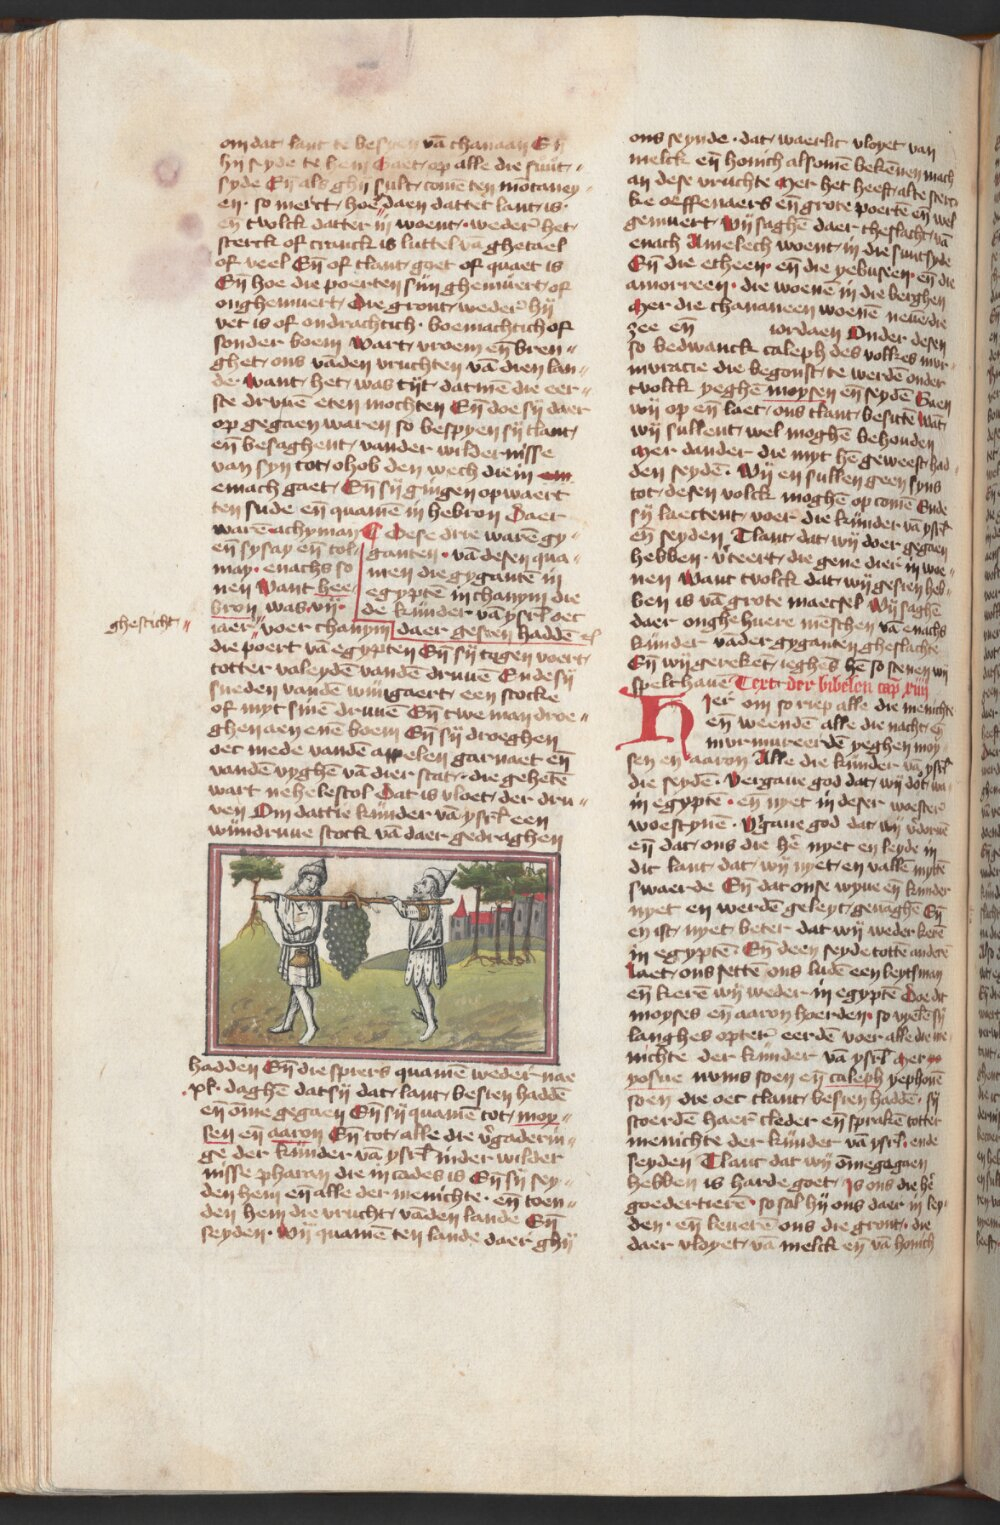 om dat lant te besien vā chanaan Eñ
hij seyde te hem Gaet op alle die suut-
syde Eñ als ghij sult comē ten mōtaney-
en so merct hoedaen dattet lant is
eñ tvolck datter in woent weder het
sterck of cranck is luttel vā ghetael
of veel Eñ of tlant goet of quaet is
Eñ hoe die poerten sijn ghemuert of
onghemuert Die gront weder hij
vet is of ondrachtich boemachtich of
sonder boem Wart vroem eñ bren-
ghet ons vāden vruchten vā dien lan-
de Want het was tijt datmē die eer-
ste druuē eten mochten Eñ doe sij daer
op gegaen waren so bespyen sij tlant
eñ besaghent vander wildernisse
van syn tot ohob den wech die in
emach gaet Eñ sij gingen opwaert
ten sude en quamē in hebron Daer
warē achyman
eñ sysay eñ tol-
may enachs so
nen Want hee-
bron was vij
iaer voer chanym
Dese drie warē gy-
ganten vā desen qua-
men die gygantē in
egyptē in chanym die
de kijnder vā ysrl oec
daer gesien haddē
ghesticht
die poert vā egypten Eñ sij togen voert
totter valeydē vandē druuē Ende sij
sneden vandē wijngaert een stocke
of myt sinē druuē Eñ twe man droe-
ghen aen enē boem Eñ sij droeghen
oec mede vandē appelen garnaet eñ
vandē vyghē vā dier stat die gehetē
wart nehelescol Dat is vloet der dru-
ven Om dattie kijnder vā ysrl een
wijndruue stock vā daer gedraghen
hadden Eñ die spiers quamē weder nae
xl daghē dat sij dat lant besien haddē
eñ ōme gegaen Eñ sij quamē tot moy-
sen eñ aaron Eñ tot alle die v'gaderin-
ge der kijnder vā ysrl inder wilder
nisse pharan die in cades is Eñ sij sey-
den hem eñ alle der menichte eñ toen-
den hem die vrucht vāden lande Eñ
seyden Wij quamē ten lande daer ghij
ons seynde dat waerlic vloyet van
melck eñ honich alsomē bekēnen mach
an dese vruchte Mer het heeft alte sterc-
ke oeffenaers eñ grote poertē eñ wel
gemuert Wij saghē daer theslacht vā
enach Amelech woent in die suutsyde
Eñ die etheen eñ die yebuseen eñ die
amorreen die woenē in die berghen
Mer die chananeen woenē neuē die
zee eñ iordaen Onder desen
so bedwanck caleph des volkes mur-
muracie die begonst te werdē onder
tvolck yeghē moysen eñ seydē Gaen
wij op eñ laet ons tlant besittē Wāt
wij sullent wel moghē behouden
Mer dander die myt hē geweest had-
den seydē Wij en sullen geen syns
tot desen volck moghē op comē Ende
sij laectent voer die kijnder vā ysrl
eñ seyden Tlant dat wij doer gegaen
hebben v'teert die gene dier in woe-
nen Want tvolck dat wij gesien heb-
ben is vā grote maecsel Wij saghē
daer onghehuere mēschen vā enachs
kijnder vāder gyganten gheslachte
Eñ wij gereket ieghēs hē so scenen wij
spelthauē Text der bibelen cap xiiij
Hier om so riep alle die menichte
eñ weendē alle die nacht eñ
murmureerdē yeghen moy-
sen eñ aaron Alle die kijnder vā ysrl
die seydē Vergaue god dat wij dot wa-
in egyptē en nyet in deser woester
woestynē V'gaue god dat wij v'doruē
eñ dat ons die hē nyet en leyde in
dit lant dat wij nyet en vallē mytē
swaerde Eñ dat onse wyue eñ kijnder
nyet en werdē geleyt geuāghē Eñ
en ist nyet beter dat wij weder kerē
in egyptē Eñ deen seyde totten anderē
Laet ons settē ons ludē een leytsman
eñ kerē wij weder in egyptē Doe dit
moyses eñ aaron hoerden so vyelē sij
langhes opter eerdē voer alle die me-
nichte der kijnder vā ysrl Mer
yosue nums soen eñ caleph yephonē
soen die oec tlant besien haddē sij
scoerdē haer cleder eñ sprakē totter
menichte der kijnder vā ysrl ende
seyden Tlant dat wij ōmegagaen
hebben is harde goet Is ons die hē
goedertierē so sal hij ons daer in ley-
den eñ leuerē ons die gront die
daer vloyet vā melck eñ vā honich